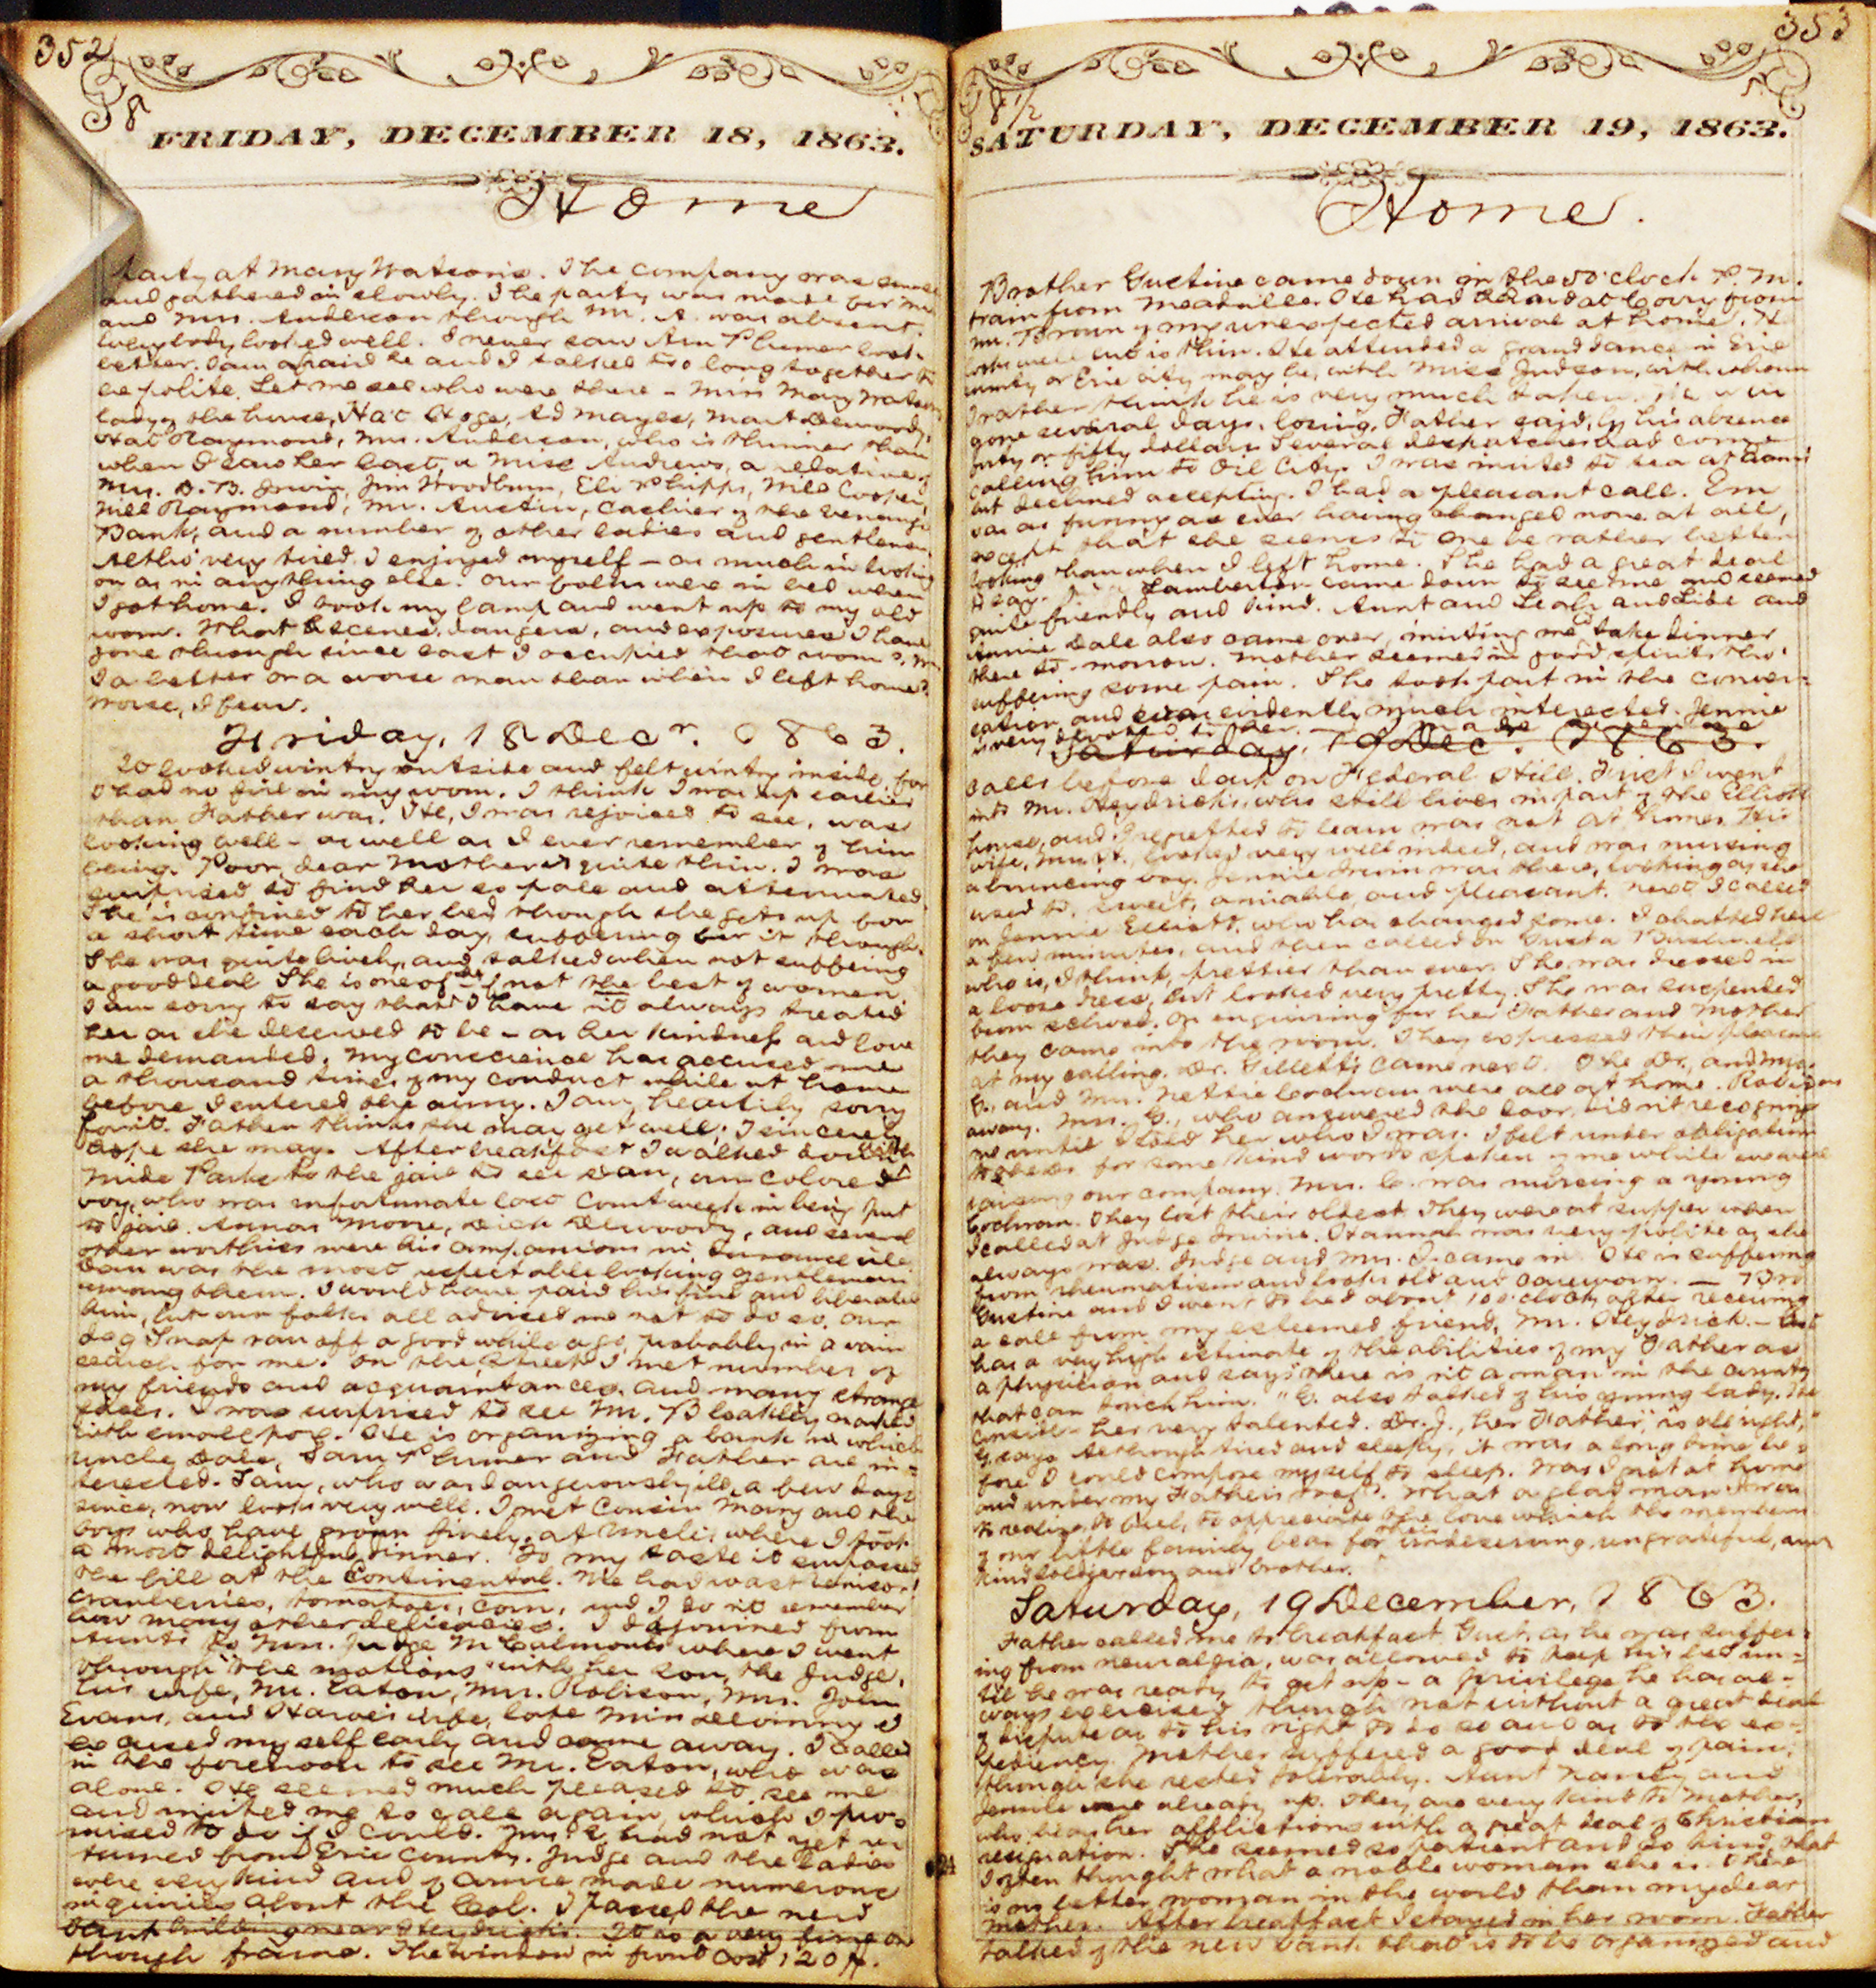 352
8
FRIDAY, DECEMBER 18, 1863.
Home
Party at Mary Watson's. The company was small
and gathered in slowly. The party was made for me
and Mrs. Anderson though Mr. A. was absent.
Everybody looked well. I never saw Arn Plumer look
better. I am afraid he and I talked too long together to
be polite. Let me see who were there - Miss Mary Watson
lady of the house, Hat Hoge, Ed Mayes, Mart Dewoody,
Hat Raymond, Mrs. Anderson, who is thinner than
when I saw her last, a Miss Andrews, a relative of
Mrs. B. Irwin, Jim Woodburn, Eli Phipps, Miss Cooper,
Miss Raymond, Mr. Austin, Cashier of the Venango
Bank, and a number of other ladies and gentlemen.
Altho' very tired I enjoyed myself - as much in looking
on as in anything else. Our folks were in bed when
I got home. I took my lamp and went up to my old
room. What scenes, dangers, and exposures I have
gone through since last I occupied that room?. Am
I a better or a worse man than when I left home?
Worse, I fear.
Friday, 18 Decr. 1863.
It looked wintry outside and felt wintry inside, for
I had no fire in my room. I think I was up earlier
than Father was. He, I was rejoiced to see, was
looking well - as well as I ever remember of him
being. Poor, dear Mother is quite thin. I was
surprised to find her so pale and attenuated.
She is confined to her bed though she gets up for
a short time each day, suffering for it though.
She was quite lively, and talked when not suffering
a good deal She is one of the if not the best of women.
I am sorry to say that I have n't always treated
her as she deserved to be - as her kindness and love
me demanded. My conscience has accused me
a thousand times of my conduct while at home
before I entered the army. I am heartily sorry
for it. Father thinks she may get well; I sincerely
hope she may. After breakfast I walked down with
Mike Parke to the jail to see Dan, our colored
boy, who was unfortunate last Court week in being put
in jail. Annas Moore, Dick Dewoody, and several
other worthies were his companions in durance vile.
Dan was the most respectable looking gentleman
among them. I would have paid his fine and liberated
him, but our folks all advised me not to do so. Our
dog Snap ran off a good while ago, probably in a vain
search for me. On the Street I met number of
my friends and acquaintances. and many strange
faces. I was surprised to see Mr. Bleakley marked
with small pox. He is organizing a bank in which
Uncle Dale, Sam Plumer and Father are in=
terested. Sam, who was dangerously ill, a few days
since, now looks very well. I met Cousin Mary and the
boys who have grown finely, at Uncle's where I took
a most delightful dinner. To my taste it surpassed
the bill at the Continental. We had roast venison,
cranberries, tomatoes, corn, and I do n't remember
how many other delicacies. I adjourned from
Aunt's to Mrs. Judge McCalmont's where I went
through "the motions" with her son, the Judge,
his wife, Mr. Eaton, Mrs. Robison, Mrs. John
Evans, and wife, late Miss I
excused myself early and came away. I called
in the forenoon to see Mr. Eaton, who was
alone. He seemed much pleased to see me
and invited me to call again, which I pro=
mised to do if I could. Mrs. E. had not yet re
turned from Erie County. Judge and the ladies
were very kind and of course made numerous
inquiries about the Col. I passed the new
bank building near Heydrick's. It is a very fine one
though frame. The window in front cost 120 $.
353
8 1/2
SATURDAY, DECEMBER 19, 1863.
Home.
Brother Gustine came down in the 5 o'clock P. M.
train from Meadville. He had heard at Corry from
Mr. Brown of my unexpected arrival at home. He
looks well but is thin. He attended a grand dance in Erie
county or Erie city may be, with Miss Judson, with whom
I rather think he is very much taken. He was
gone several days, losing, Father said, by his absence
forty or fifty dollars. Several despatches had come
calling him to Oil City. I was invited to tea at
but declined accepting. I had a pleasant call. Em
was as funny as ever having changed none at all,
except that she seems to me be rather better
looking than when I left home. She had a great deal
to say. Lamberton came down to see me and seemed
quite friendly and kind. Aunt and Leah and Lide and
Annie Dale also came over, inviting me to take dinner
there to-morrow. Mother seemed in good spirits tho'
suffering some pain. She took part in the conver=
sation and was evidently much interested. Jennie
is very devoted to her. I made
Saturday, 19 Dec. 1863.
calls before dark on Federal Hill. First I went
into Mr. Heydrick's, who still lives in part of the Elliott
house, and I regretted to learn was not at home. His
wife, Mrs. H., looked very well indeed, and was nursing
a bouncing boy. Jennie Irwin was there, looking as she
used to, sweet, amiable, and pleasant. Next I called
on Jennie Elliott, who has changed some. I chatted here
a few minutes, and then called on Gusta Bushnell
who is, I think, prettier than ever. She was dressed in
a loose dress, but looked very pretty. She was suspended
from school. On enquiring for her Father and Mother
they came into the room. They expressed their pleasure
at my calling. Dr. Gillett's came next. The Dr., and Mrs.
G., and Mrs. Nettie Cochran were all at home. Rob was
away. Mrs. G., who answered the door, did n't recognize
me until I told her who I was. I felt under obligation
to for some kind words spoken of me while we were
raising our company. Mrs. C. was nursing a young
Cochran. They lost their oldest. They were at supper when
I called at Judge Irwin's. Hannah was very polite as she
always was. Judge and Mrs. I. came in. He is suffering
from rheumatism and looks old and careworn. — Bro
Gustine and I went to bed about 10 o'clock, after receiving
a call from my esteemed friend, Mr. Heydrick. - Gus
has a very high estimate of the abilities of my Father as
a physician and says "there is n't a man in the county
that can touch him." G. also talked of his young lady. He
considers her very talented. Dr. J., her Father, "is all right,"
G. says. Although tired and sleepy, it was a long time be=
fore I could compose myself to sleep. Was I not at home
and under my Father's roof? What a glad man I was
to realize, to feel, to appreciate the love which the members
of our little family bear for their undeserving, ungrateful, and
kind soldier son and brother.
Saturday, 19 December, 1863.
Father called me to breakfast. Gust. as he was suffer=
ing from neuralgia, was allowed to keep his bed un=
til he was ready to get up - a privilege he has al=
ways exercised though not without a great deal
of dispute as to his right to do so and as to the ex=
pediency. Mother suffered a good deal of pain;
though she rested tolerably. Aunt Nancy and
Jennie were already up. They are very kind to Mother,
who bears her afflictions with a great deal of Christian
resignation. She seemed so patient and so kind that
I often thought what a noble woman she is. There
is no better woman in the world than my dear
mother. After breakfast I stayed in her room. Father
talked of the new bank that is to be organized and